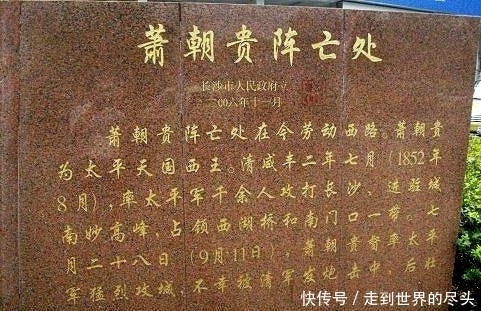 萧朝贵阵亡处
长沙市人民政府立
二〇〇八年十一月
萧朝贵阵亡处在今劳动西路。萧朝贵
为太平天国西王。清咸丰二年七月（1852年
8月），率太平军千余人攻打长沙，进驻城
南妙高峰，占领西湖桥和南门口一带。七
月二十八日（9月11日），萧朝贵督率太平
军猛烈攻城，不幸被清军发炮击中，后壮
快传号／走到世界的尽头